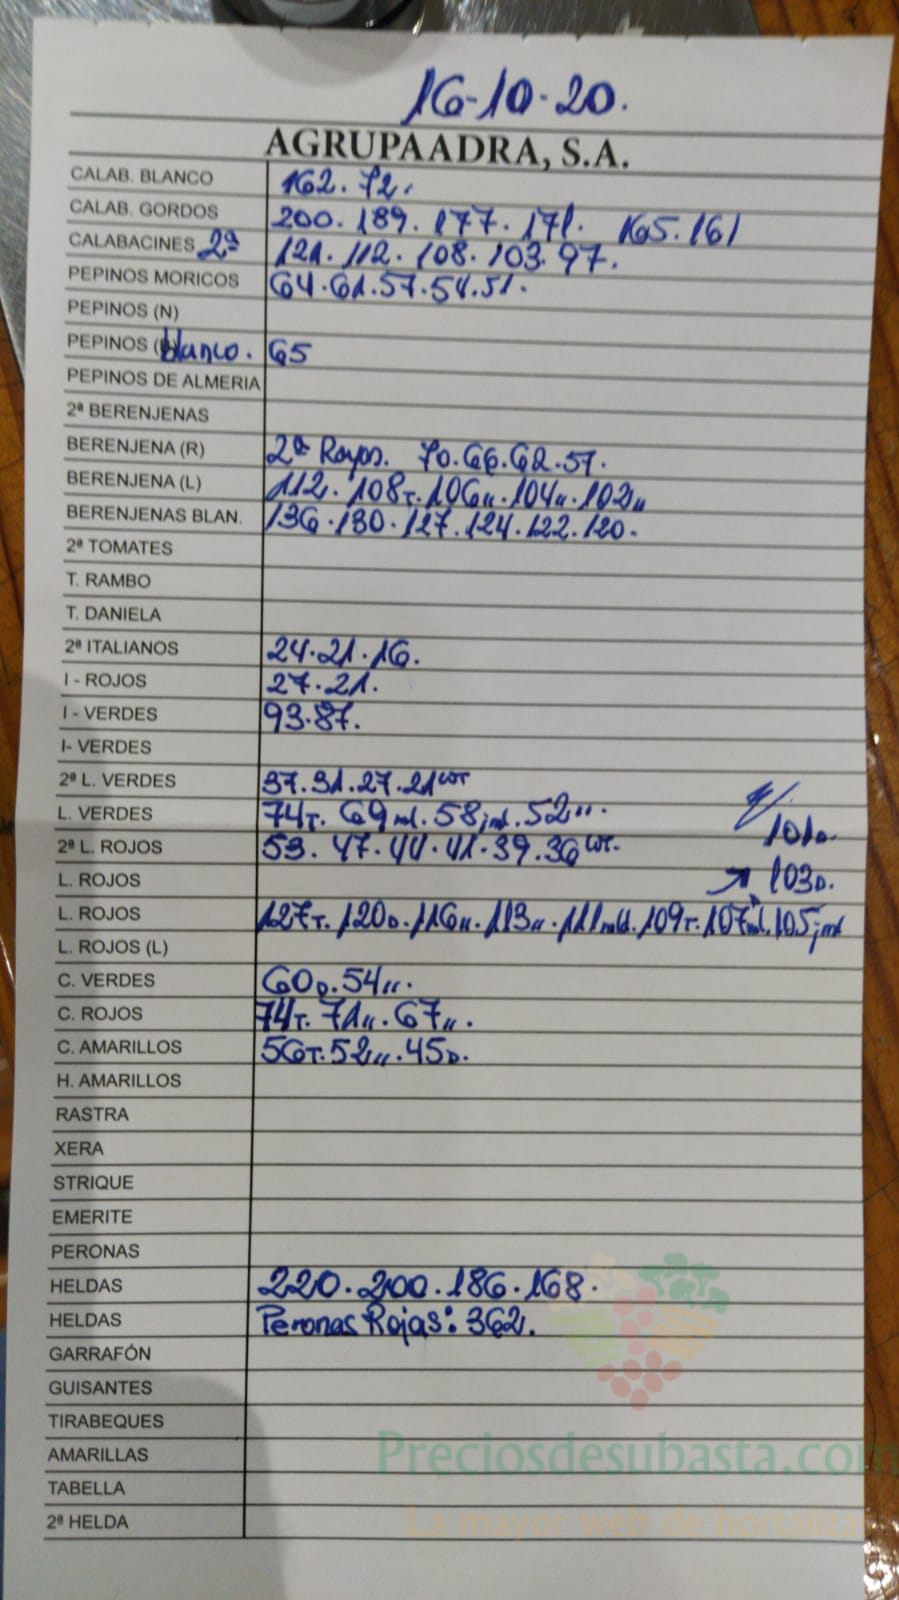 16-10-20.
AGRUPAADRA, S.A.
CALAB. BLANCO 162. 72.
CALAB. GORDOS 200. 189. 177. 171. 165. 161
CALABACINES 2ª 121. 112. 108. 103. 97.
PEPINOS MORICOS 64. 61. 57. 54. 51.
PEPINOS (N)
PEPINOS ( blanco. 65
PEPINOS DE ALMERIA
2ª BERENJENAS
BERENJENA (R) 2ª Rayas. 70. 66. 62. 57.
BERENJENA (L) 112. 108T. 106". 104". 102"
BERENJENAS BLAN. 136. 130. 127. 124. 122. 120.
2ª TOMATES
T. RAMBO
T. DANIELA
2ª ITALIANOS 24. 21. 16.
I - ROJOS 27. 21.
I - VERDES 93. 87.
I- VERDES
2ª L. VERDES 37. 31. 27. 21
L. VERDES 74T. 69 ml. 58 jml. 52".
101D.
2ª L. ROJOS 53. 47. 44. 41. 39. 36
L. ROJOS 103D.
L. ROJOS 127T. 120D. 116". 113". 111 mld. 109T. 107 ml. 105 jml
L. ROJOS (L)
C. VERDES 60D. 54".
C. ROJOS 74T. 71". 67".
C. AMARILLOS 56T. 52". 45D.
H. AMARILLOS
RASTRA
XERA
STRIQUE
EMERITE
PERONAS
HELDAS 220. 200. 186. 168.
HELDAS Peronas Rojas: 362.
GARRAFÓN
GUISANTES
TIRABEQUES
AMARILLAS
Preciosdesubasta.com
TABELLA
2ª HELDA
La mayor web de hortaliza